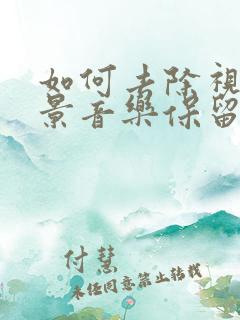 如何去除視
景音樂保留
付慧
未經同意禁止轉載